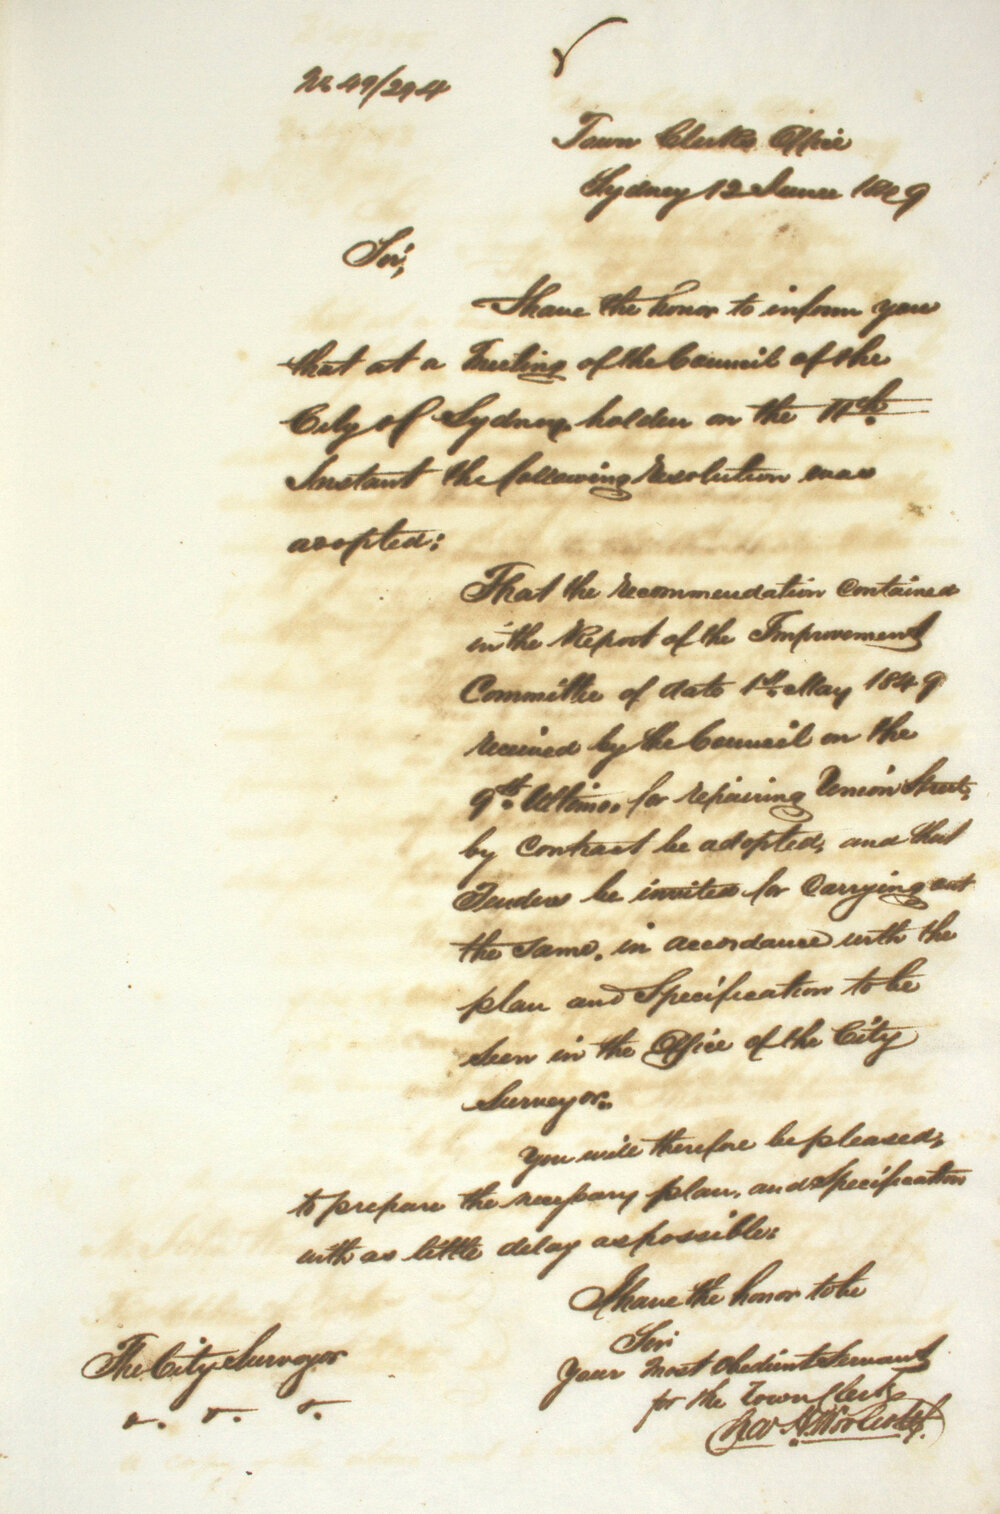 No 49/294
Town Clerks Office
Sydney 12 June 1849
Sir,
I have the honor to inform you
that at a Meeting of the Council of the
City of Sydney, holden on the 11th.
Instant the following resolution was
adopted:
That the recommendation contained
in the Report of the Improvement
Committee of date 1st. May 1849
received by the Council on the
9th. Ultimo, for repairing Union Street,
by contract be adopted, and that
Tenders be invited for carrying out
the same, in accordance with the
plan and Specification to be
seen in the Office of the City
Surveyor.
You will therefore be pleased,
to prepare the necessary plan, and Specification
with as little delay as possible:
I have the honor to be
Sir
Your most obedient servant
for the Town Clerk
The City Surveyor